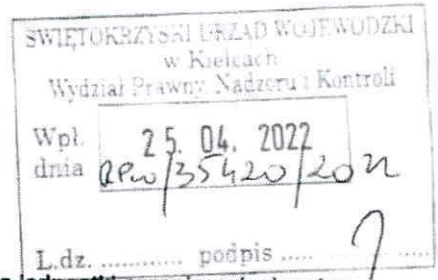 ŚWIĘTOKRZYSKI URZĄD WOJEWÓDZKI
w Kielcach
Wydział Prawny Nadzoru i Kontroli
Wpł.
dnia
25. 04. 2022
RPw/35420/2022
L.dz. ............ podpis .....